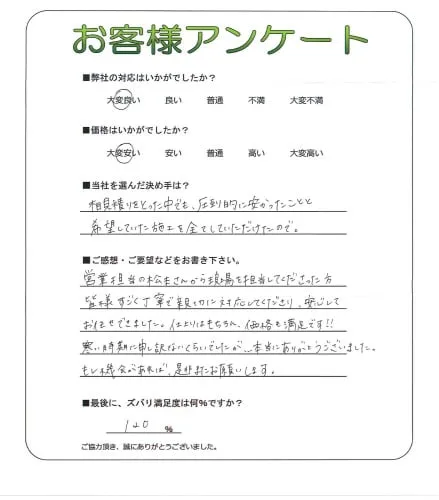 お客様アンケート
■弊社の対応はいかがでしたか？
大変良い 良い 普通 不満 大変不満
■価格はいかがでしたか？
大変安い 安い 普通 高い 大変高い
■当社を選んだ決め手は？
相見積りをとった中でも、圧倒的に安かったことと
希望していた施工を全てしていただけたので。
■ご感想・ご要望などをお書き下さい。
営業担当の松生さんから現場を担当してくださった方
皆様すごく丁寧で親切に対応してくださり、安心して
お任せできました。仕上りはもちろん、価格も満足です!!
寒い時期に申し訳ないくらいでしたが…本当にありがとうございました。
もし機会があれば、是非またお願いします。
■最後に、ズバリ満足度は何%ですか？
120 %
ご協力頂き、誠にありがとうございました。